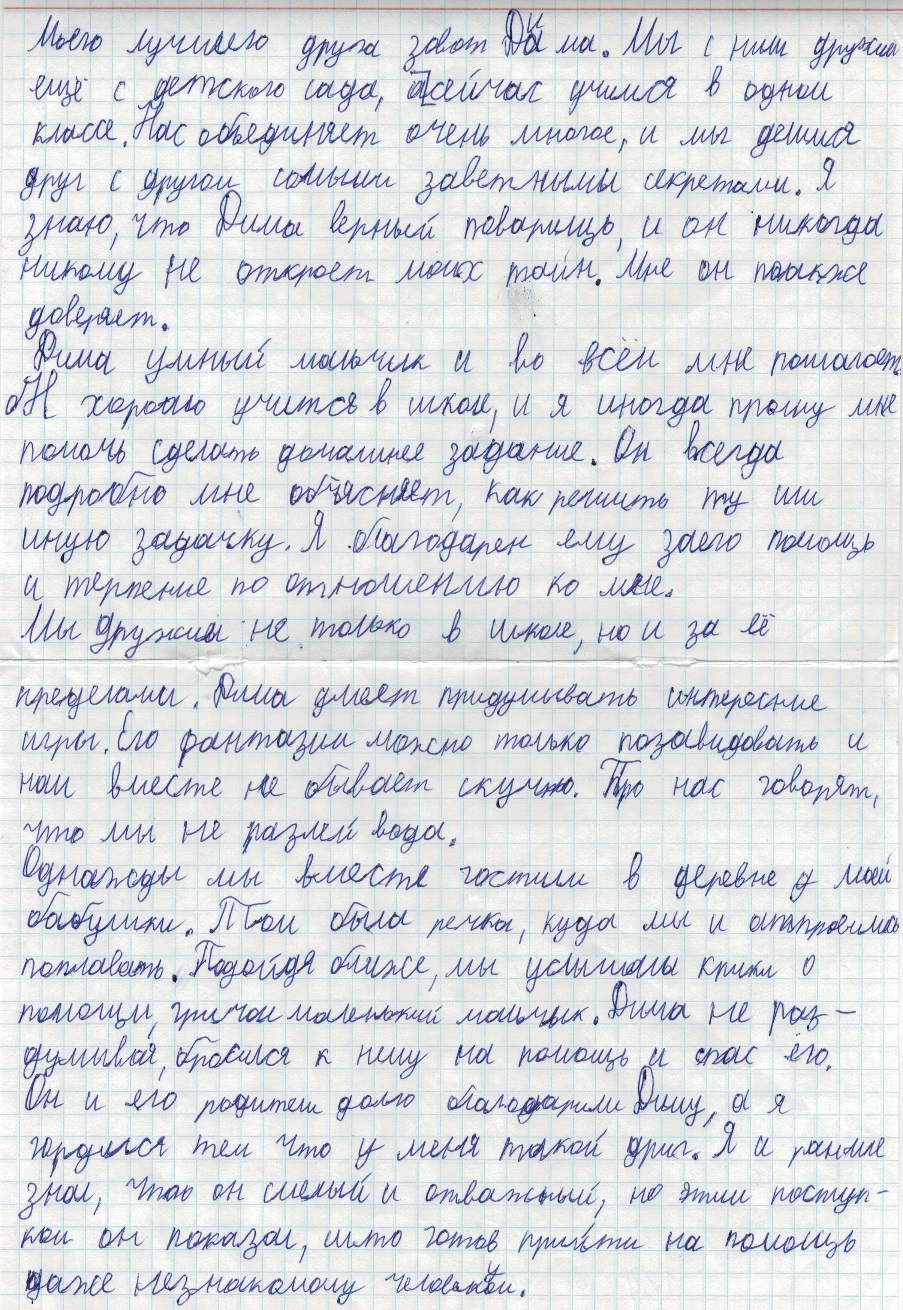 Моего лучшего друга зовот Дима. Мы с ним дружим
ещё с детского сада, а сейчас учимся в одном
классе. Нас объединяет очень многое, и мы делимся
друг с другом самыми заветными секретами. Я
знаю, что Дима верный товарищь, и он никогда
никому не откроет моих тайн. Мне он также
доверяет.
Дима умный мальчик и во всём мне помогает.
ОН хорошо учится в школе, и я иногда прошу мне
помочь сделать домашнее задание. Он всегда
подробно мне объясняет, как решить ту или
иную задачку. Я благодарен ему заего помощь
и терпение по отношению ко мне.
Мы дружим не только в школе, но и за её
пределами. Дима умеет придумывать интересные
игры. Его фантазии можно только позавидовать и
нам вместе не бывает скучно. Про нас говорят,
что мы не разлей вода.
Однажды мы вместе гостили в деревне у моей
бабушки. Там была речка, куда мы и отправились
поплавать. Подойдя ближе, мы услышалы крики о
помощи, кричал маленький мальчик. Дима не раз-
думывая, бросился к нему на помощь и спас его.
Он и его родители долго благодарили Диму, а я
гордился тем что у меня такой друг. Я и раньше
знал, что он смелый и отважный, но этим поступ-
ком он показал, што готов прийти на помощь
даже незнакомому человеку.